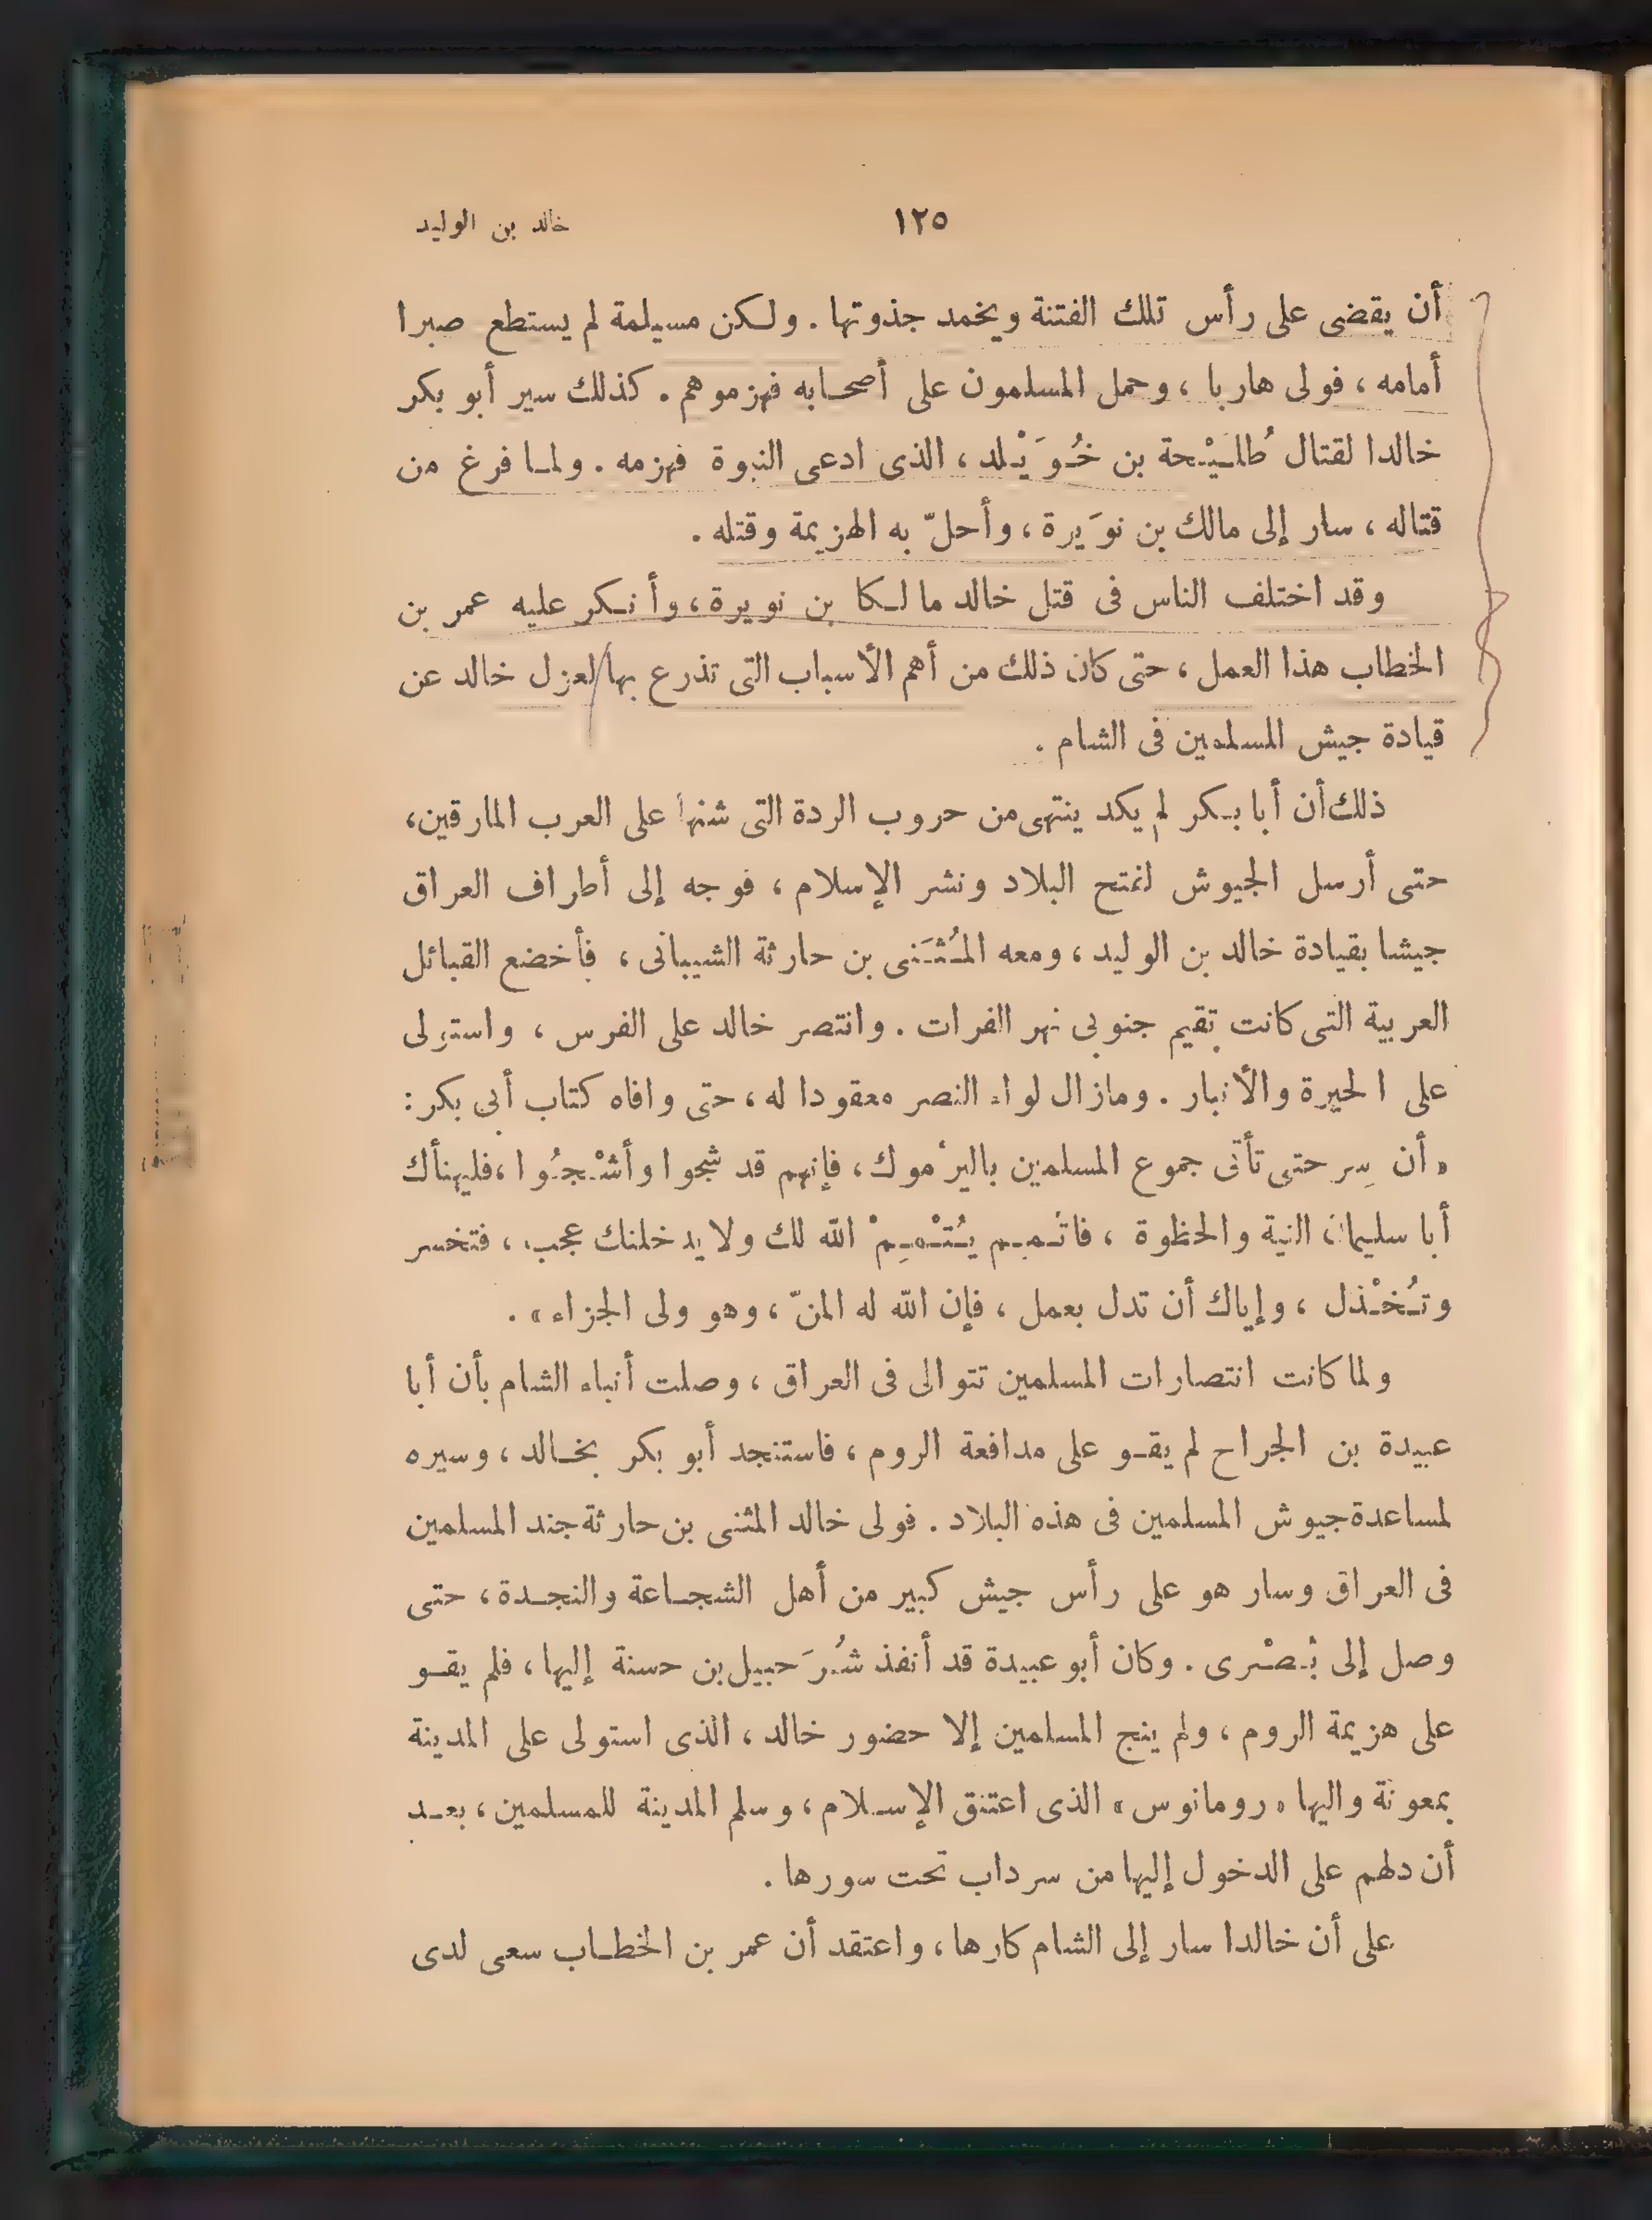 خالد بن الوليد
١٢٥
أن يقضى على رأس تلك الفتنة ويخمد جذوتها . ولكن مسيلمة لم يستطع صبرا
أمامه ، فولى هاربا ، وحمل المسلمون على أصحابه فهزموهم . كذلك سير أبو بكر
خالدا لقتال طُلَيْحة بن خُوَيْلد ، الذى ادعى النبوة فهزمه . ولما فرغ من
قتاله ، سار إلى مالك بن نوَيرة ، وأحلّ به الهزيمة وقتله .
وقد اختلف الناس فى قتل خالد مالكا بن نويرة ، وأنكر عليه عمر بن
الخطاب هذا العمل ، حتى كان ذلك من أهم الأسباب التى تذرع بها لعزل خالد عن
قيادة جيش المسلمين فى الشام .
ذلك أن أبا بكر لم يكد ينتهى من حروب الردة التى شنها على العرب المارقين ،
حتى أرسل الجيوش لفتح البلاد ونشر الإسلام ، فوجه إلى أطراف العراق
جيشا بقيادة خالد بن الوليد ، ومعه المُثَنى بن حارثة الشيبانى ، فأخضع القبائل
العربية التى كانت تقيم جنوبى نهر الفرات . وانتصر خالد على الفرس ، واستولى
على الحيرة والأنبار . ومازال لواء النصر معقودا له ، حتى وافاه كتاب أبى بكر :
« أن سِر حتى تأتى جموع المسلمين باليرْموك ، فإنهم قد شجوا وأشْجُوا ، فليهنأك
أبا سليمان النية والحظوة ، فاتمم يُتْمِمْ الله لك ولا يدخلنك عجب ، فتخسر
وتُخْذل ، وإياك أن تدل بعمل ، فإن الله له المنّ ، وهو ولى الجزاء » .
ولما كانت انتصارات المسلمين تتوالى فى العراق ، وصلت أنباء الشام بأن أبا
عبيدة بن الجراح لم يقو على مدافعة الروم ، فاستنجد أبو بكر بخالد ، وسيره
لمساعدة جيوش المسلمين فى هذه البلاد . فولى خالد المثنى بن حارثة جند المسلمين
فى العراق وسار هو على رأس جيش كبير من أهل الشجاعة والنجدة ، حتى
وصل إلى بُصْرى . وكان أبو عبيدة قد أنفذ شُرَحبيل بن حسنة إليها ، فلم يقو
على هزيمة الروم ، ولم ينج المسلمين إلا حضور خالد ، الذى استولى على المدينة
بمعونة واليها « رومانوس » الذى اعتنق الإسلام ، وسلم المدينة للمسلمين ، بعد
أن دلهم على الدخول إليها من سرداب تحت سورها .
على أن خالدا سار إلى الشام كارها ، واعتقد أن عمر بن الخطاب سعى لدى